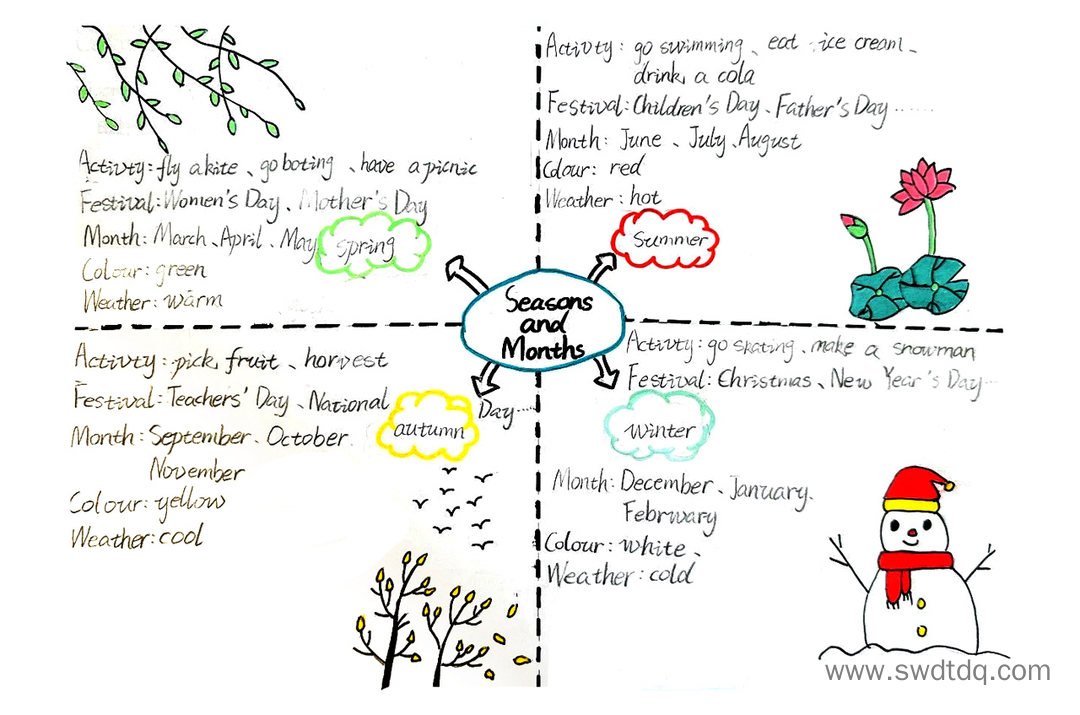 Activty: fly a kite、go boting、have a picnic
Festival: Women's Day、Mother's Day
Month: March、April、May
Colour: green
Weather: warm
spring
Activty: go swimming、eat ice cream、
drink a cola
Festival: Children's Day、Father's Day......
Month: June、July、August
Colour: red
Weather: hot
Summer
Seasons
and
Months
Activty: pick fruit、horvest
Festival: Teachers' Day、National
Day......
Month: September、October
November
Colour: yellow
Weather: cool
autumn
Activty: go skating、make a snowman
Festival: Christmas、New Year's Day...
Winter
Month: December、January、
Februrary
Colour: white、
Weather: cold
www.swdtdq.com